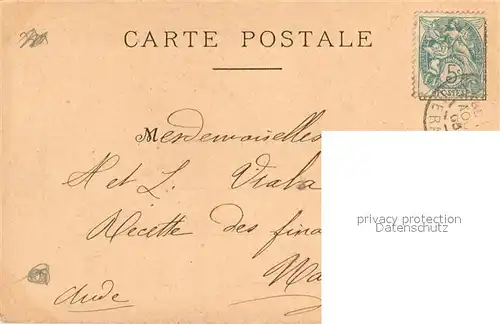 CARTE POSTALE
5c
POSTES
Mesdemoiselles
H et L. Viala
Recette des fina
Na
Aude
privacy protection
Datenschutz